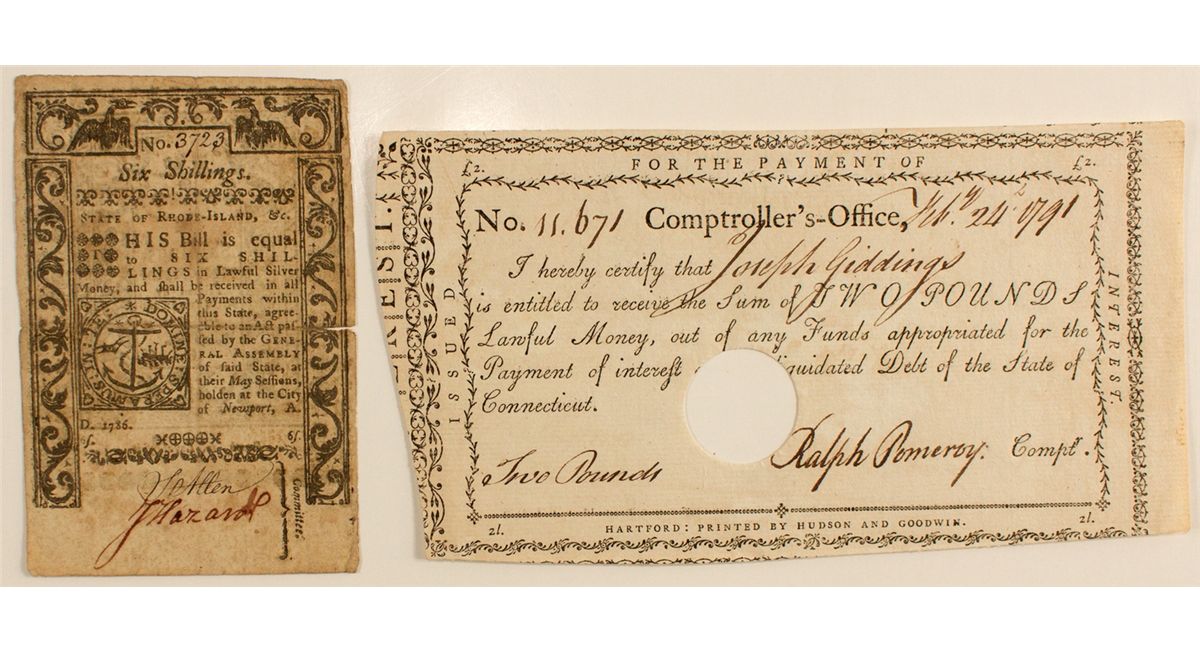 No. 3723
Six Shillings.
STATE OF RHODE-ISLAND, &c.
THIS Bill is equal
to SIX SHIL-
LINGS in Lawful Silver
Money, and shall be received in all
Payments within
this State, agree-
able to an Act pas-
sed by the GENE-
RAL ASSEMBLY
of said State, at
their May Sessions,
holden at the City
of Newport, A.
D. 1786.
6s. 6s.
Committee.
IN DOMINE SPERAMUS
J Allen
J Hazard
FOR THE PAYMENT OF
£2. £2.
No. 11.671 Comptroller's-Office, Feby. 24th 1791
I hereby certify that Joseph Giddings
is entitled to receive the Sum of TWO POUNDS
Lawful Money, out of any Funds appropriated for the
Payment of interest liquidated Debt of the State of
Connecticut.
Two Pounds Ralph Pomeroy. Comptr.
HARTFORD: PRINTED BY HUDSON AND GOODWIN.
2l. 2l.
ISSUED
INTEREST.